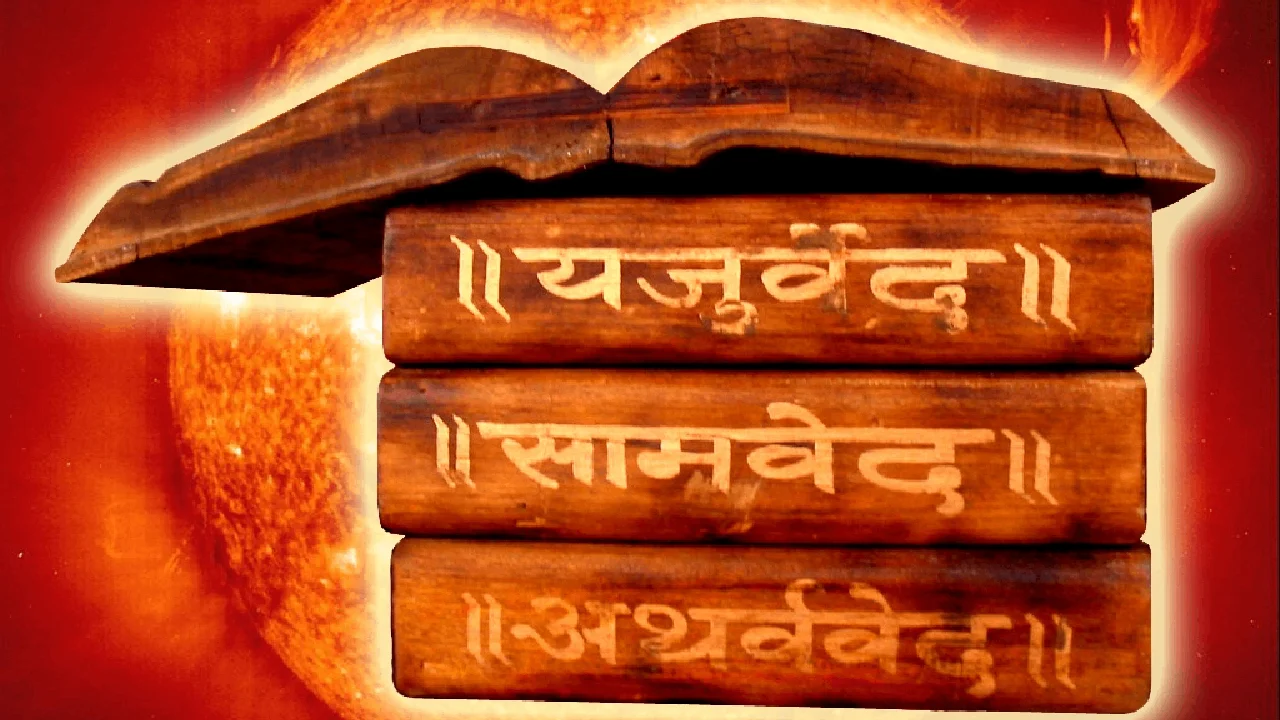 ॥ यजुर्वेद ॥
॥ सामवेद ॥
॥ अथर्ववेद ॥